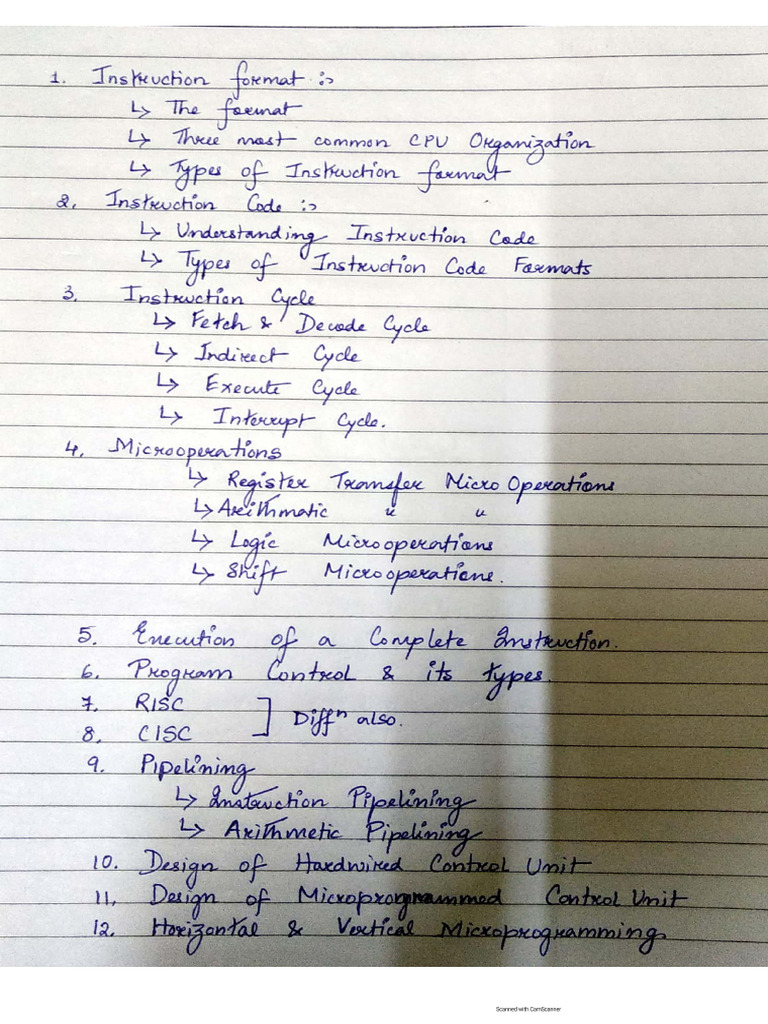 1. Instruction format :-
↳ The format
↳ Three most common CPU Organization
↳ Types of Instruction format
2. Instruction Code :-
↳ Understanding Instruction Code
↳ Types of Instruction Code Formats
3. Instruction Cycle
↳ Fetch & Decode Cycle
↳ Indirect Cycle
↳ Execute Cycle
↳ Interrupt Cycle.
4. Microoperations
↳ Register Transfer Micro Operations
↳ Arithmatic " "
↳ Logic Microoperations
↳ Shift Microoperations.
5. Execution of a Complete Instruction.
6. Program Control & its types.
7. RISC
8. CISC ] Diffⁿ also.
9. Pipelining
↳ Instruction Pipelining
↳ Arithmetic Pipelining
10. Design of Hardwired Control Unit
11. Design of Microprogrammed Control Unit
12. Horizontal & Vertical Microprogramming.
Scanned with CamScanner